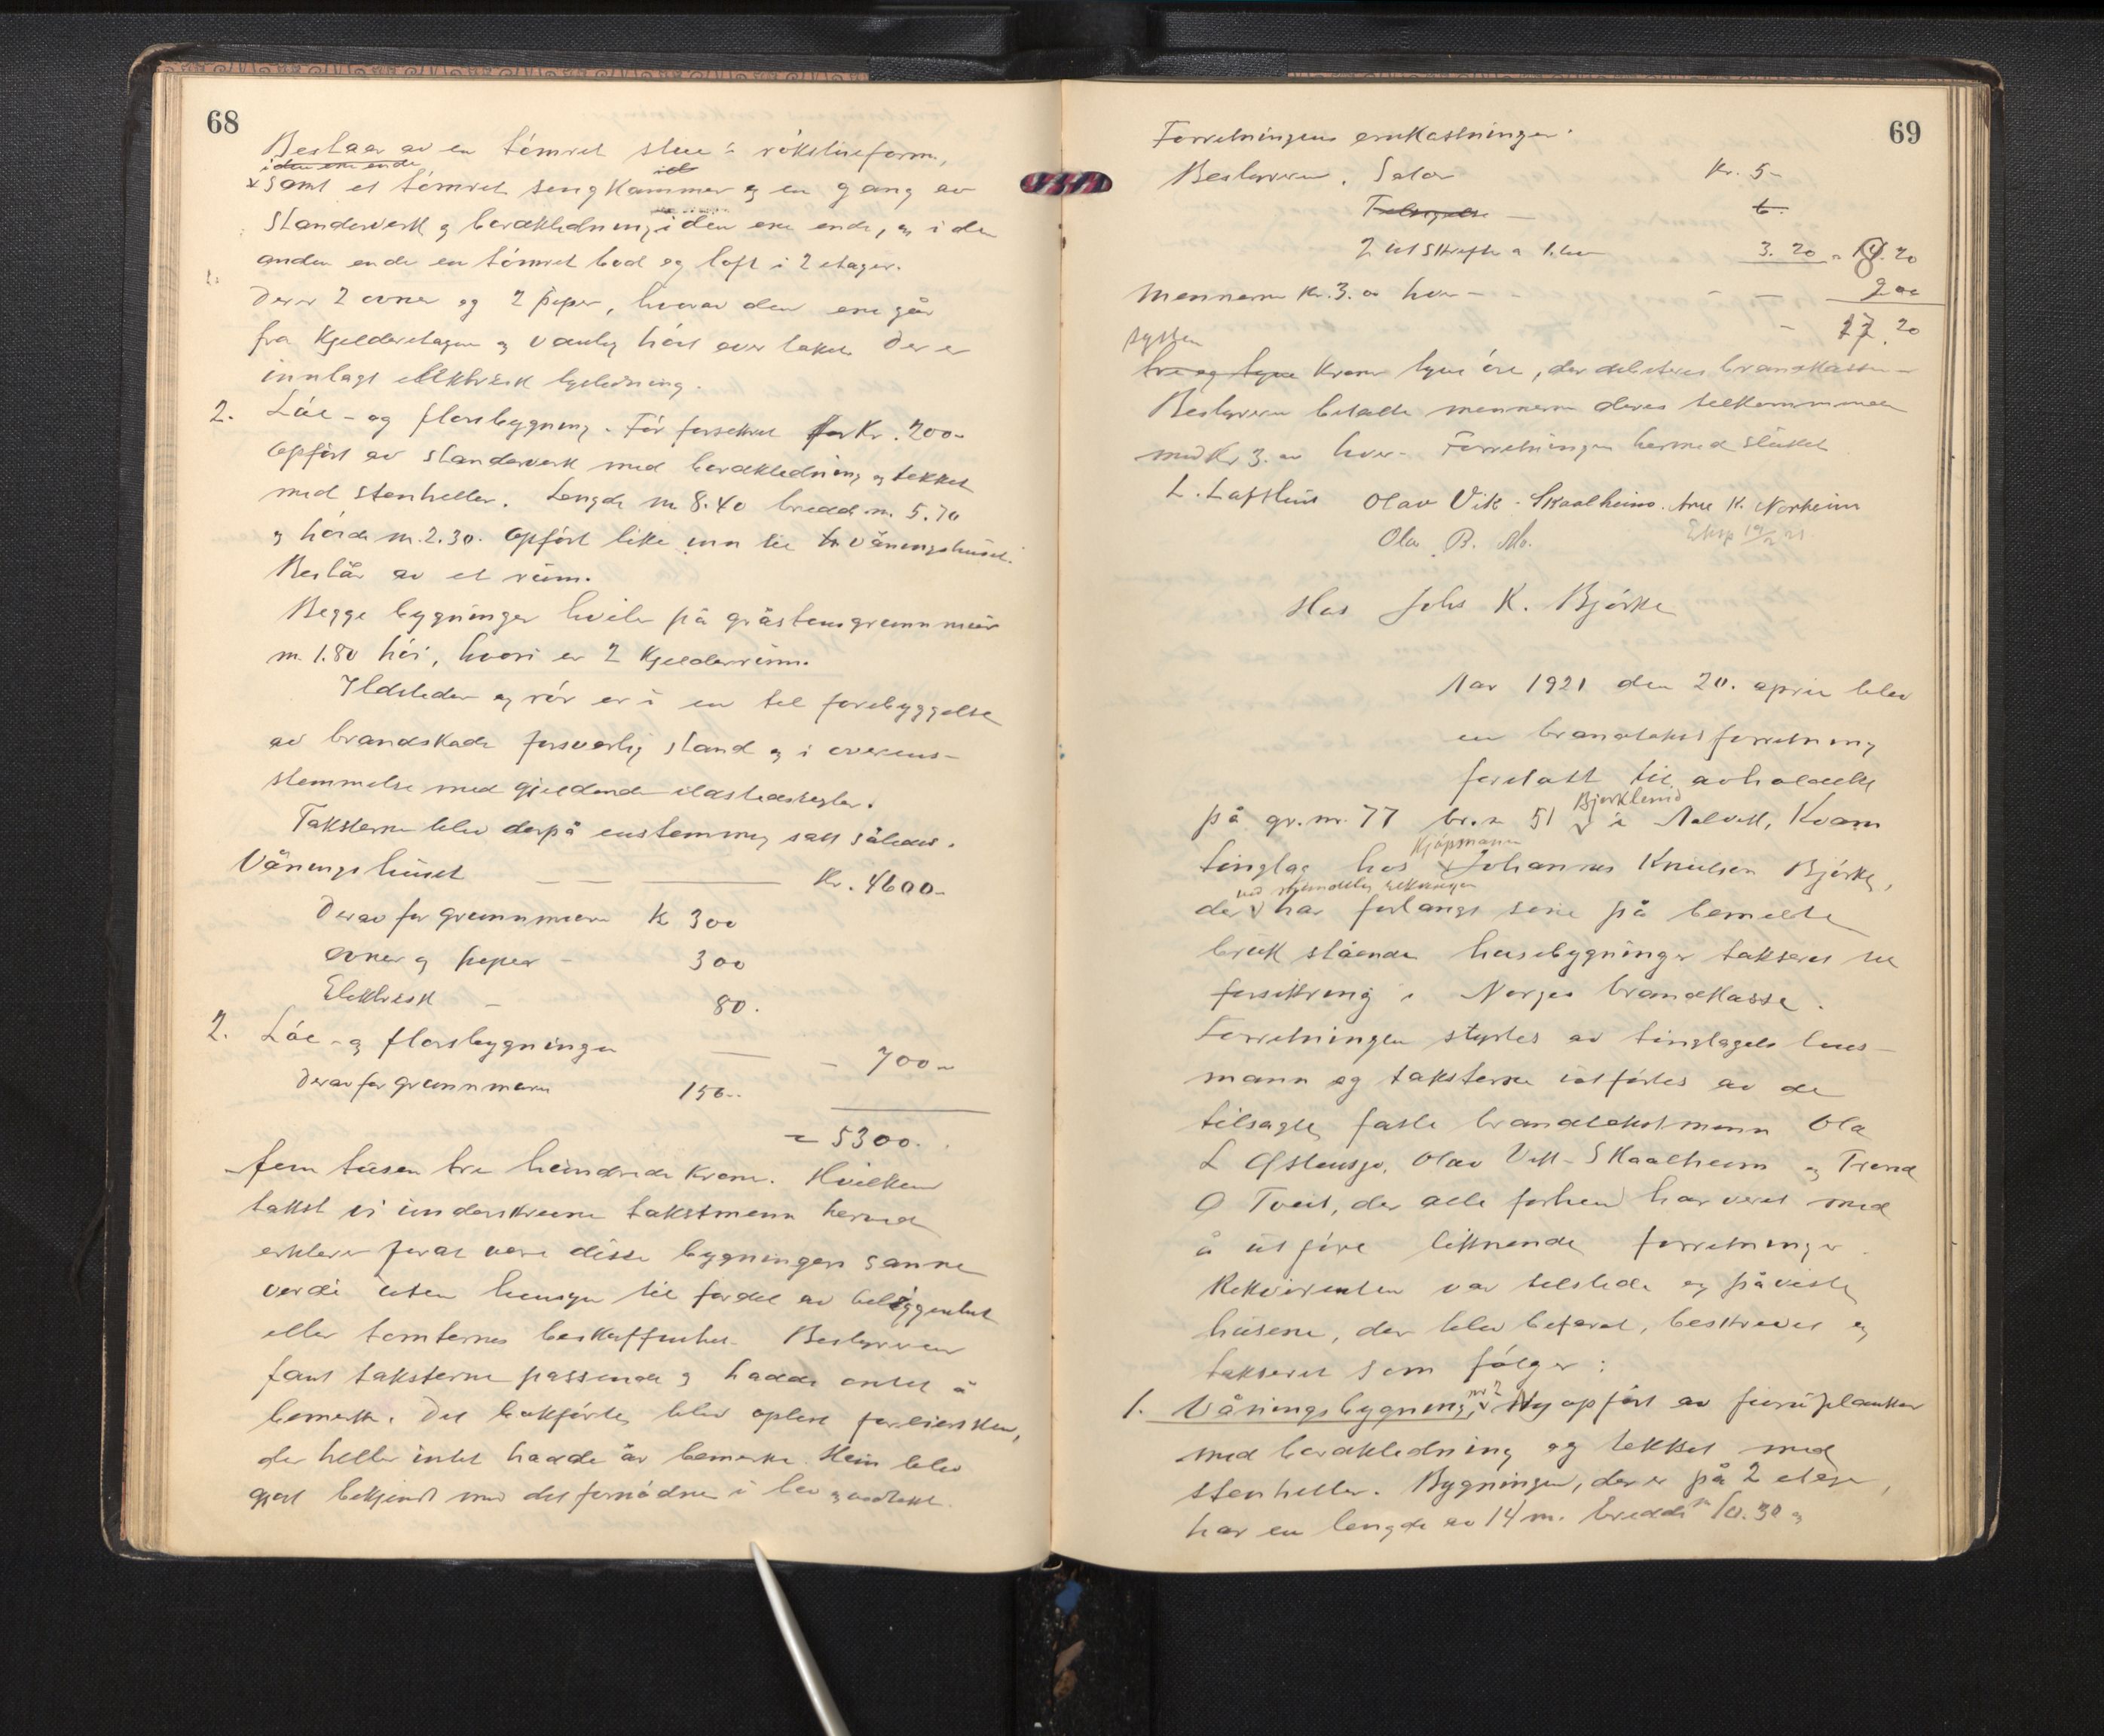 68
Bestaar av en tómret stue i rökstueform,
i den ene ende
samt et tómret sengkammer og en gang av
standerverk og bordkledning i den ene ende, og i den
anden ende en tómret bod og loft i 2 etager.
Der er 2 ovner og 2 piper, hvorav den ene går
fra kjelderetagen og vanlig hóit over taket. Der er
innlagt elektrisk lysledning.
2. Lóe- og florsbygning. Fór forsikret for Kr. 200-
Opfórt av standerverk med bordkledning og tekket
med stenheller. Lengde m 8.40 bredde m. 5.70
og hóide m. 2.30. Opfórt like inn til våningshuset.
Består av et rúm.
Begge bygninger hviler på gråstensgrunnmúr
m. 1.80 hói, hvori er 2 kjelderrúm.
Ildsteder og rór er i en til forebyggelse
av brandskade forsvarlig stand og i overens-
stemmelse med gjeldende ildstedsregler.
Taksterne blev derpå enstemmig satt således.
Våningshúset Kr. 4600-
Derav for grunnmúren K 300
ovner og piper - 300
Elektrisk - 80.
2. Lóe- og florsbygningen - 700-
Derav for grunnmúren 150..
= 5300.
fem túsen tre húndrede kroner. Hvilken
takst vi únderskrevne takstmenn herved
erklerer for at vere disse bygningers sanne
verdi úten hensyn til fordel av beliggenhet
eller tomternes beskaffenhet. Bestyreren
fant taksterne passende og hadde intet å
bemerke. Det bokfórte blev oplest for eiersken,
der heller intet hadde å bemerke. Hún blev
gjort bekjendt med det fornódne i lov og vedtekt.
69
Forretningens omkostninger:
Bestyreren. Salær Kr. 5-
6.
2 utskrifter a 1.60 3.20 = 8.20
Mennerne kr. 3. a hver - - 9.00
- 17.20
sytten
tre og tyve kroner tyve óre, der debiteres brandkassen -
Bestyreren betalte mennerne deres tilkommende
med Kr 3. a hver. Forretningen hermed slúttet
L. Lofthús Olav Vik - Skaalheim. Arne K. Norheim
Ola B. Mo.
Eksp 19/2 21
Hos Johs K. Bjórke
Aar 1921 den 20. april blev
en brandtakstforretning
foretatt til avholdelse
Bjorklund
på gr. nr. 77 br. n 51 i Aalvik, Kvam
Kjópmann
tinglag hos Johannes Knútsen Bjórke,
der har forlangt sine på bemelte
brúk stående húsebygninger takseret til
forsikring i Norges brandkasse.
Forretningen styrtes av tinglagets lens-
mann og taksterne útfórtes av de
tilsagte, faste brandtakstmenn Ola
L Ofstensjo, Olav Vik - Skaalheim og Trond
O Tveit, der alle forhen har veret med
å útfóre liknende forretninger.
Rekvirenten var tilstede og påviste
húsene, der blev befaret, beskrevet og
takseret som fólger:
nr 2
1. Våningsbygning, Ny opfórt av fúrúplanker
med bordkledning og tekket med
stenheller. Bygningen, der er på 2 etager,
har en lengde av 14 m. bredde m 10.30 og